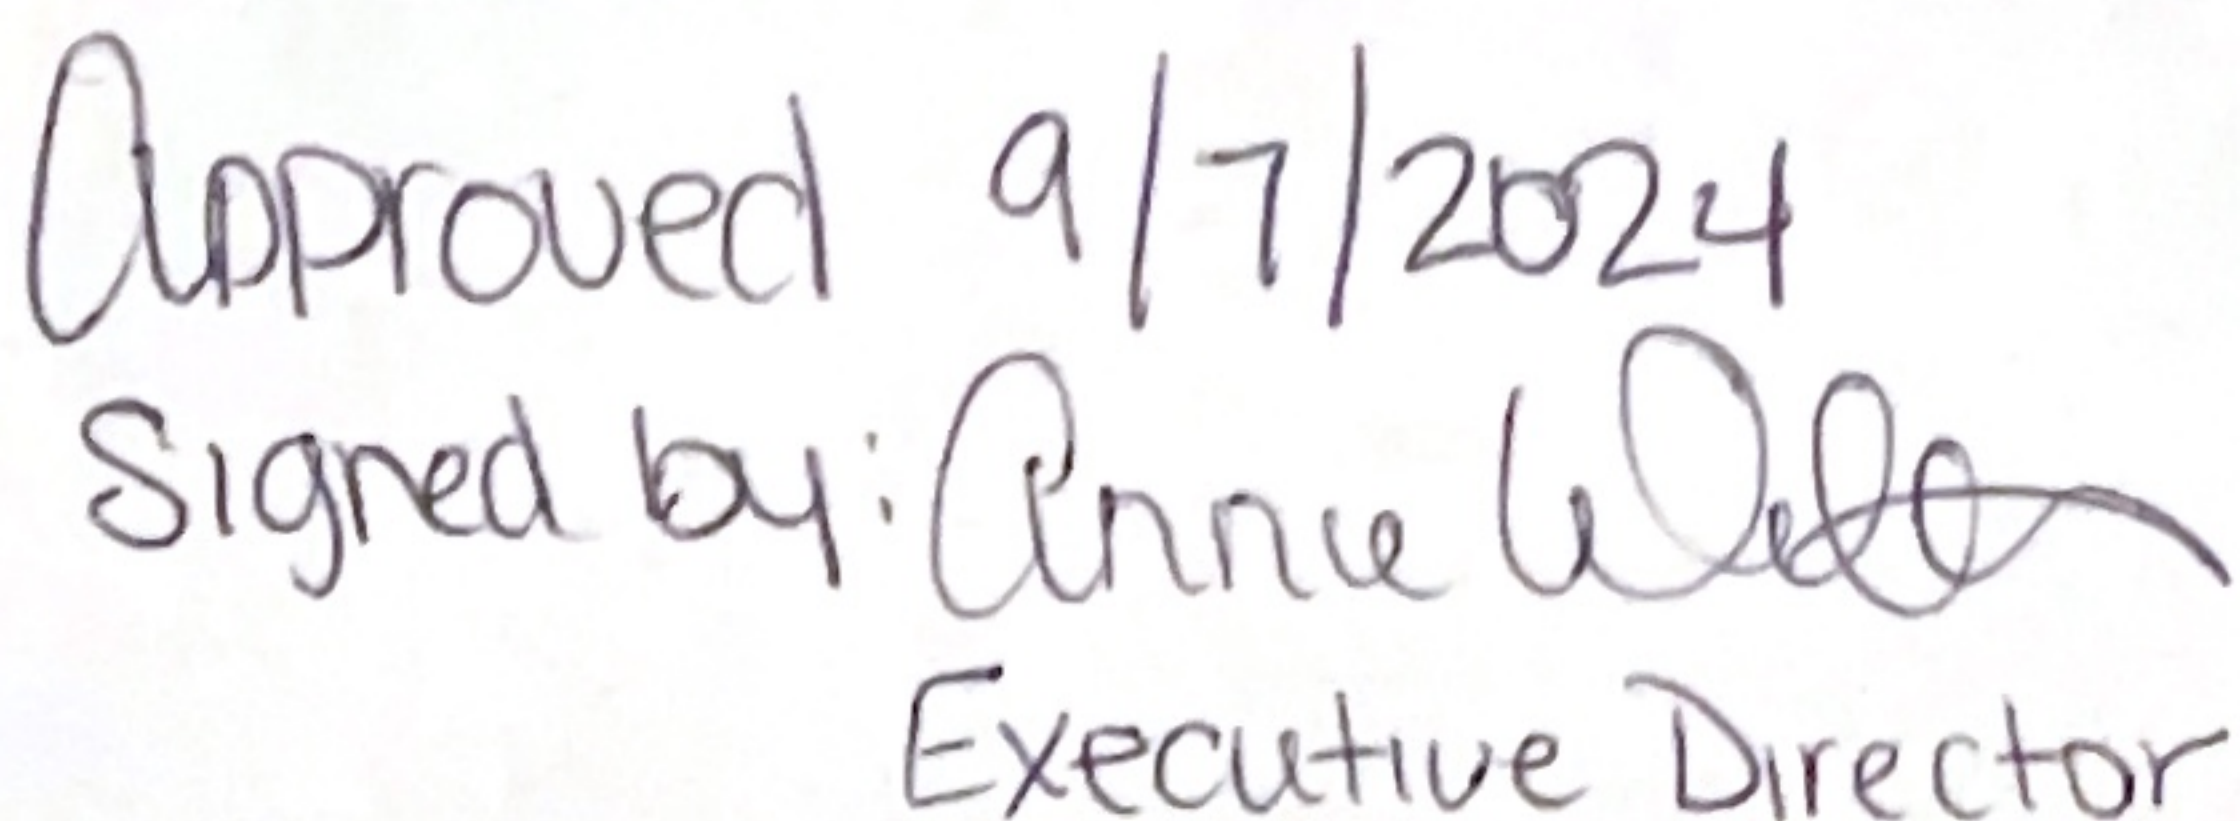 Approved 9/7/2024
Signed by: Annie
Executive Director